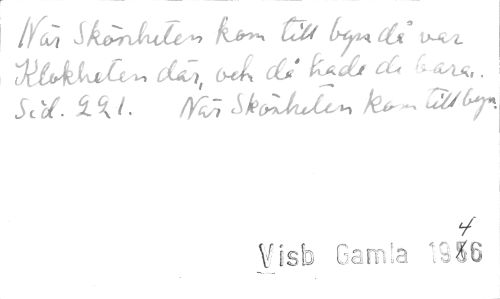 När Skönheten kom till byn då var
Klokheten där, och då hade de bara.
Sid. 221. När Skönheten kom till byn.
4
Visb Gamla 1986